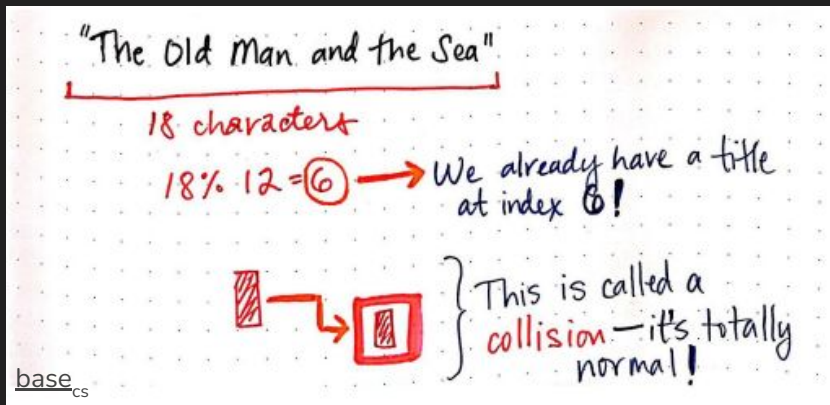 "The Old Man and the Sea"
18 characters
18% 12 = 6 → We already have a title
at index 6!
This is called a
collision — it's totally
normal!
base cs